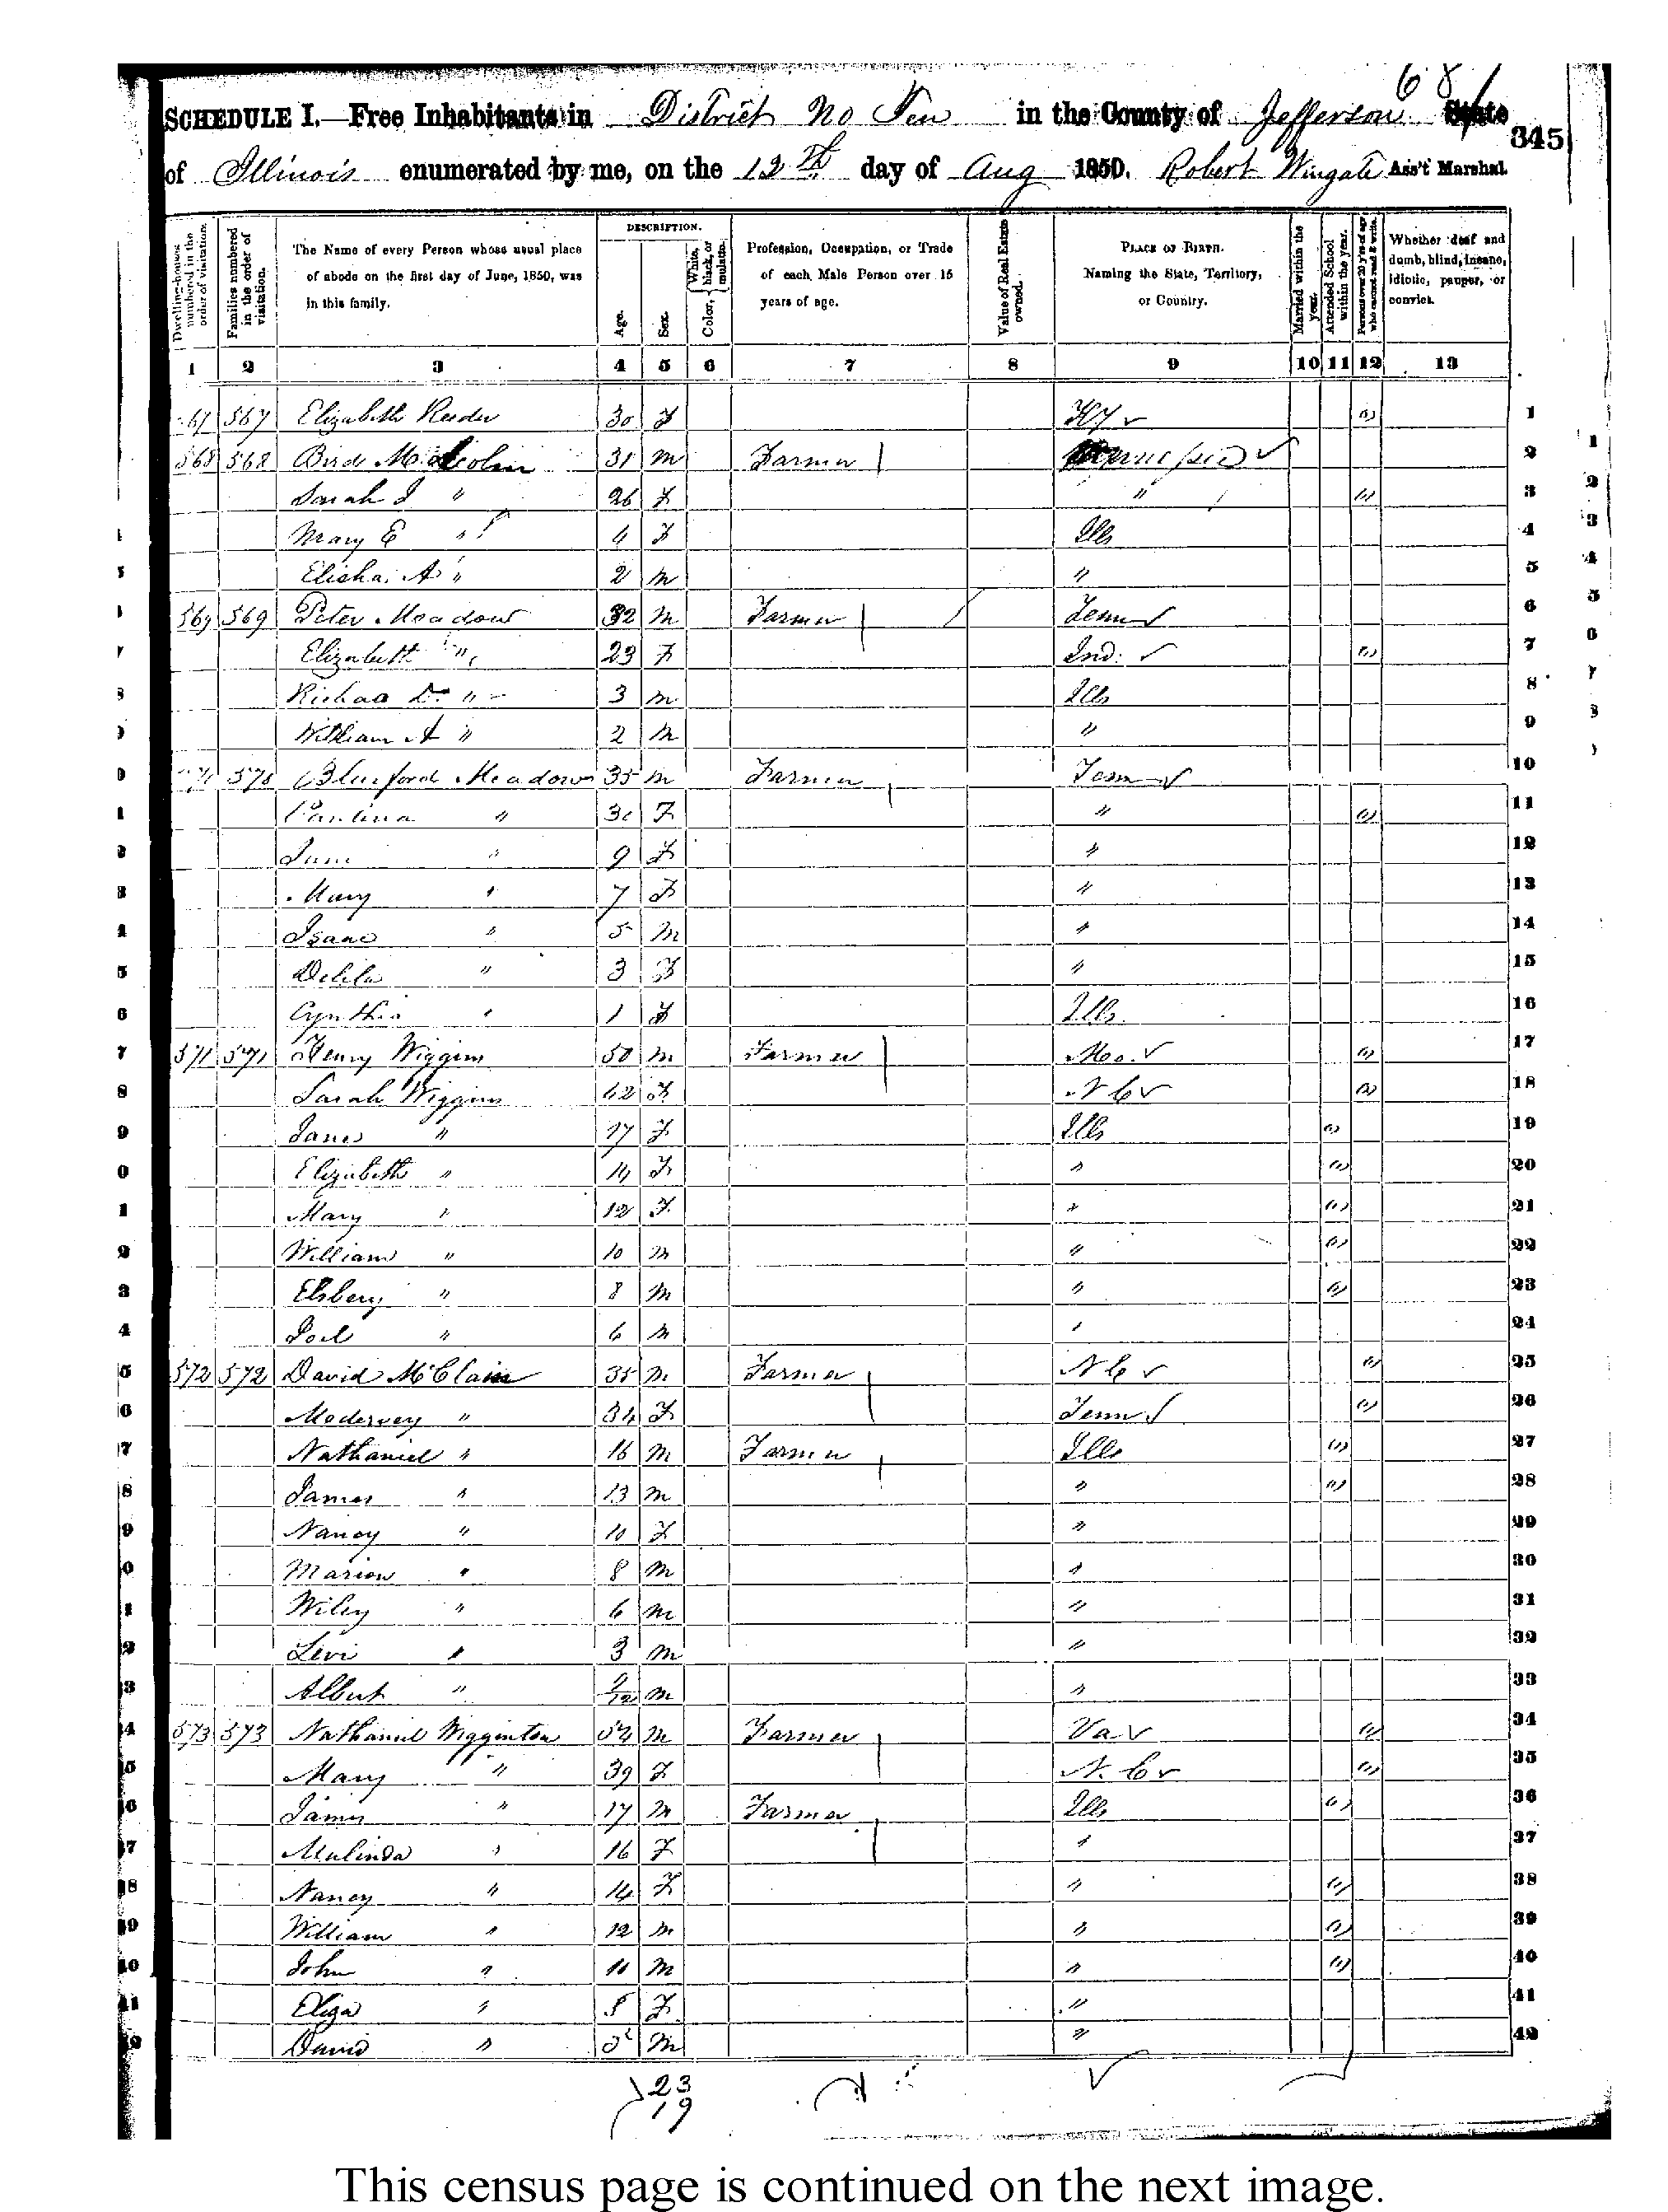 681
SCHEDULE I.—Free Inhabitants in District No Ten in the County of Jefferson State
345
of Illinois enumerated by me, on the 12th day of Aug 1850. Robert Wingate Ass't Marshal.
Dwelling-houses numbered in the order of visitation.
Families numbered in the order of visitation.
The Name of every Person whose usual place of abode on the first day of June, 1850, was in this family.
DESCRIPTION.
Age.
Sex.
Color, { White, black, or mulatto.
Profession, Occupation, or Trade of each Male Person over 15 years of age.
Value of Real Estate owned.
PLACE OF BIRTH. Naming the State, Territory, or Country.
Married within the year.
Attended School within the year.
Persons over 20 y'rs of age who cannot read & write.
Whether deaf and dumb, blind, insane, idiotic, pauper, or convict.
1 2 3 4 5 6 7 8 9 10 11 12 13
567 Elizabeth Reeder 30 F Ky 1
568 568 Bird Malcolm 31 M Farmer 2
Sarah J " 26 F " 3
Mary E " 4 F Ills 4
Elisha A " 2 M " 5
569 569 Peter Meadows 32 M Farmer Tenn 6
Elizabeth " 23 F Ind. 7
" 3 M Ills 8
William A " 2 M " 9
570 Bluford Meadows 35 M Farmer Tenn 10
" 30 F " 11
Jane " 9 F " 12
Mary " 7 F " 13
Isaac " 5 M " 14
Delila " 3 F " 15
Cynthia " 1 F Ills. 16
571 571 Henry Wiggins 50 M Farmer Mo. 17
Sarah Wiggins 42 F N C 18
Janes " 17 F Ills 19
Elizabeth " 14 F " 20
Mary " 12 F " 21
William " 10 M " 22
Elsbery " 8 M " 23
Joel " 6 M " 24
572 572 David McClain 35 M Farmer N C 25
" 34 F Tenn 26
Nathaniel " 16 M Farmer Ills 27
James " 13 M " 28
Nancy " 10 F " 29
Marion " 8 M " 30
Wiley " 6 M " 31
Levi " 3 M " 32
Albert " M " 33
573 573 Nathaniel Wigginton 54 M Farmer Va 34
Mary " 39 F N. C 35
James " 17 M Farmer Ills 36
Malinda " 16 F " 37
Nancy " 14 F " 38
William " 12 M " 39
John " M " 40
Eliza " 8 F " 41
David " M " 42
23
19
This census page is continued on the next image.